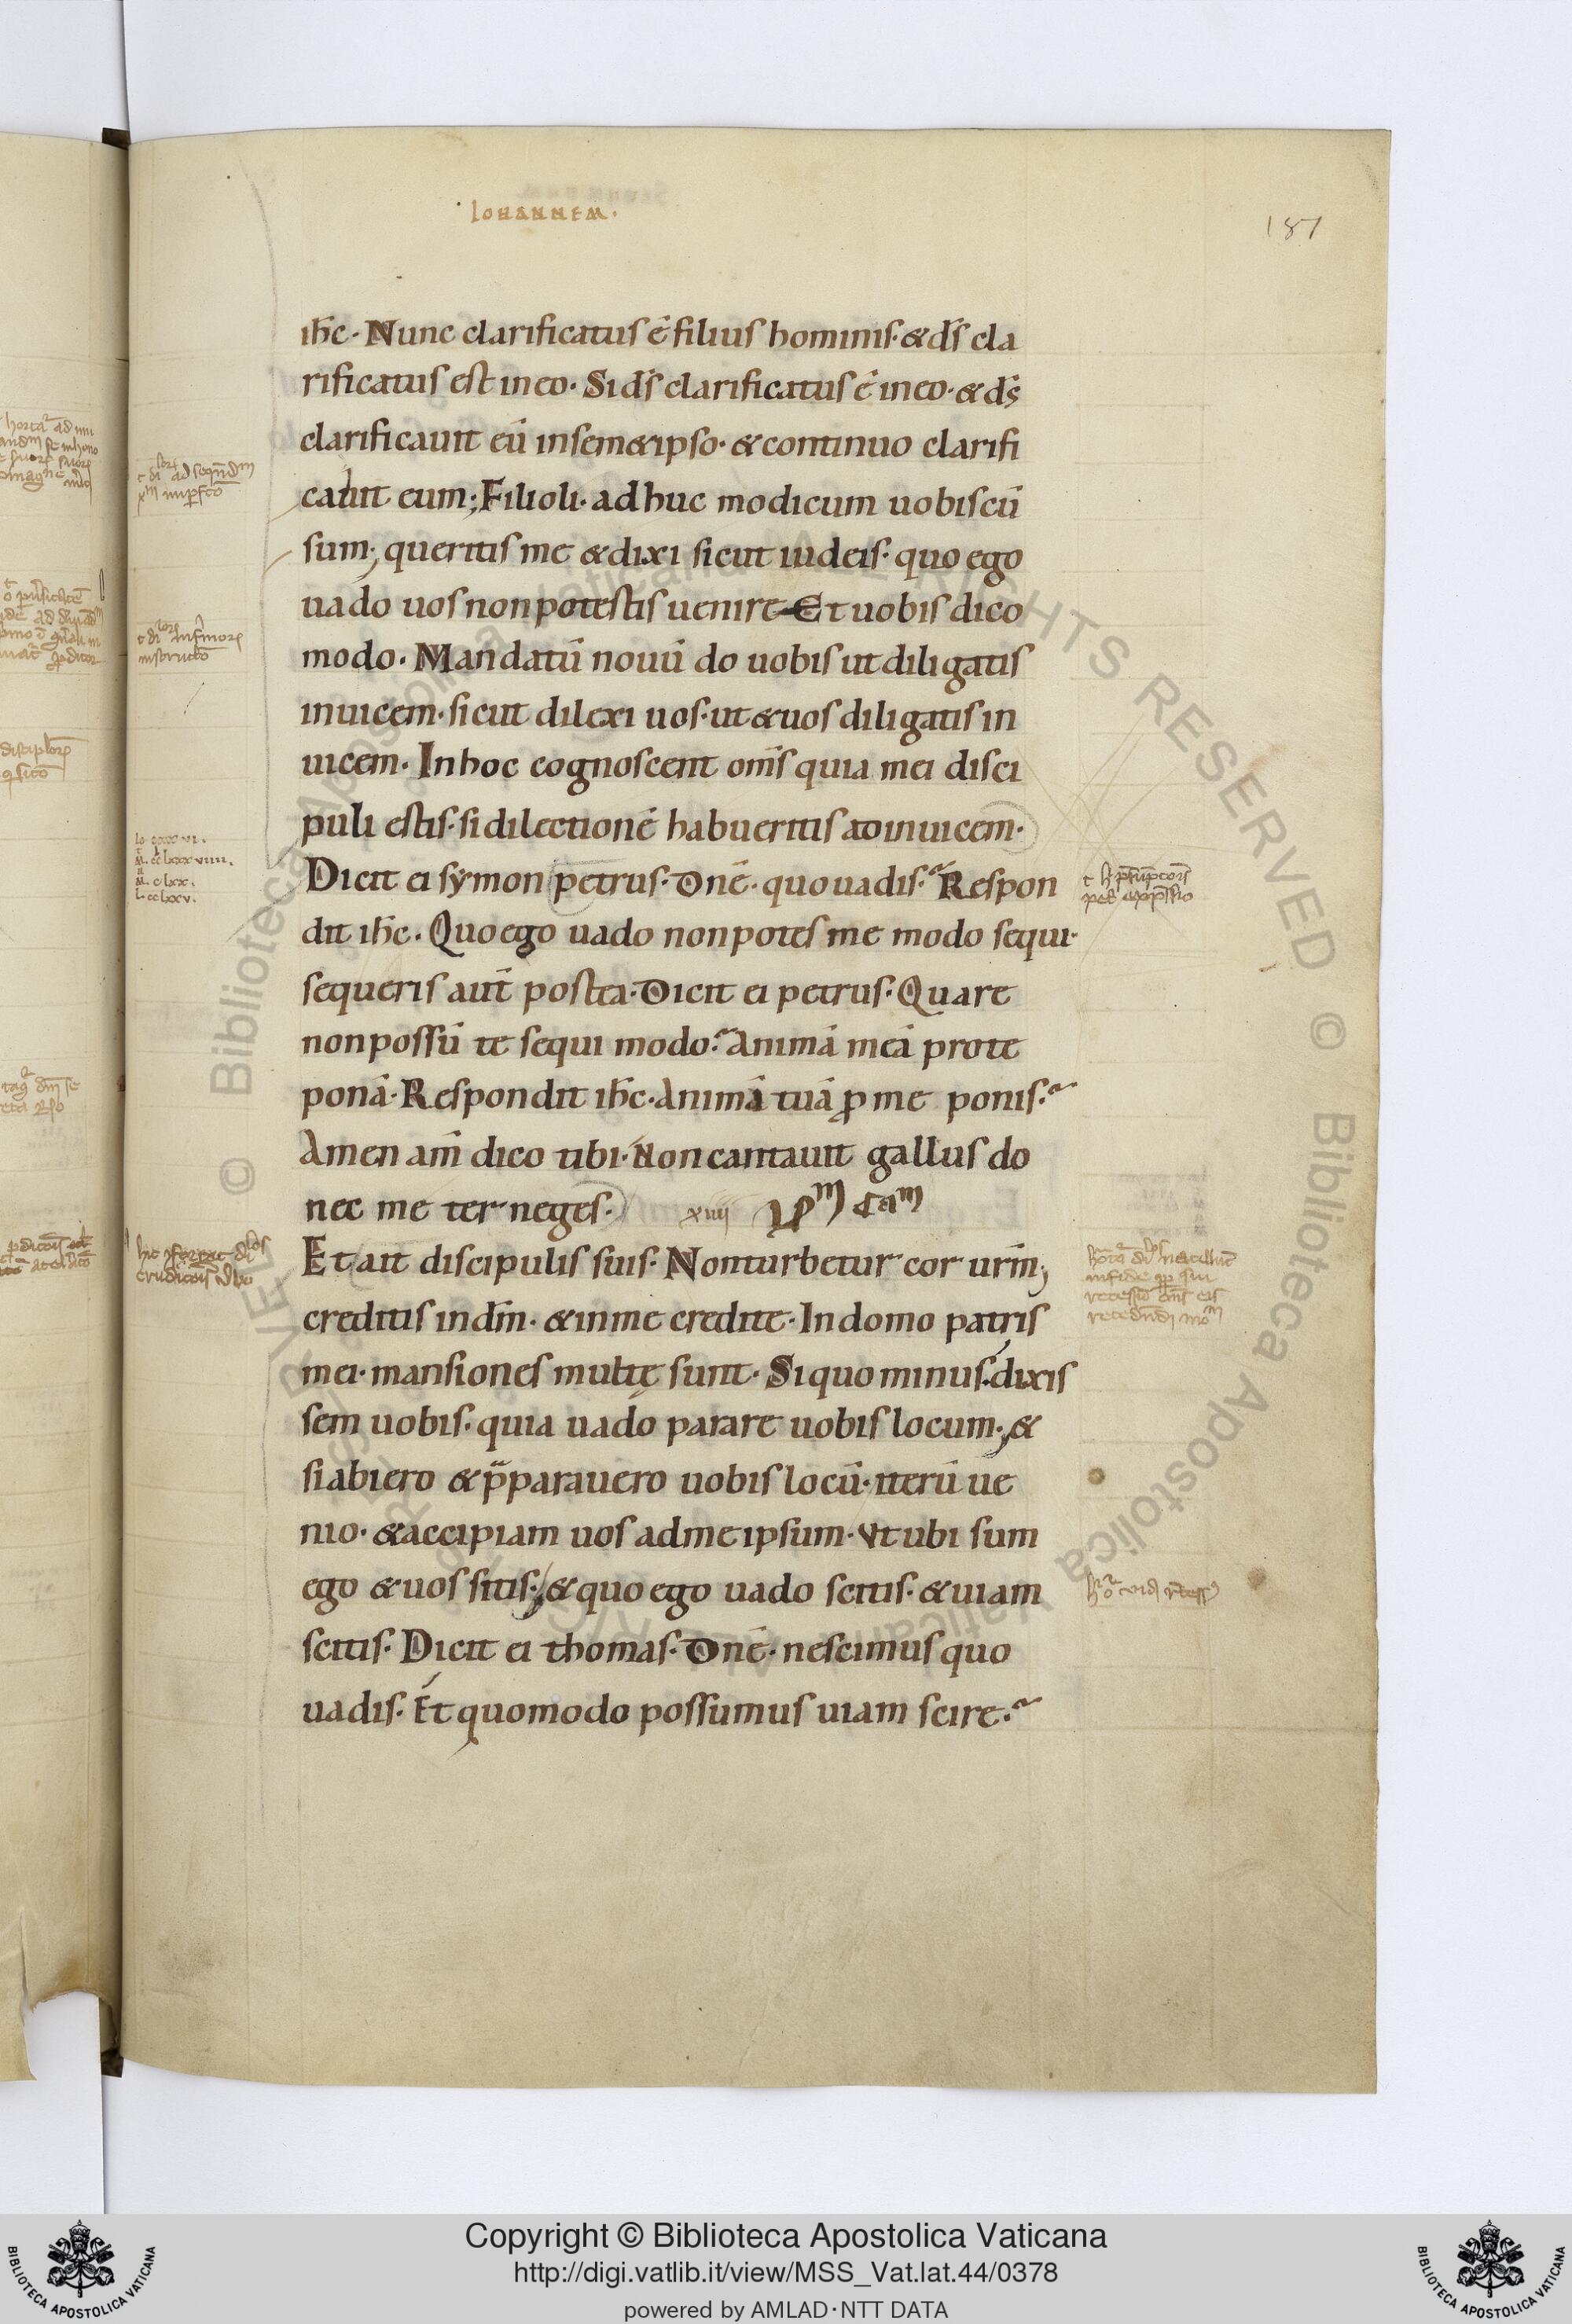 Iohannem.
187
ihc̄. Nunc clarificatus ē filius hominis. & ds̄ cla
rificatus est in eo. Si ds̄ clarificatus ē in eo. & ds̄
clarificauit eū in sem&ipso. & continuo clarifi
cabit eum; Filioli. adhuc modicum uobiscū
sum; queritis me & dixi sicut iudeis. quo ego
uado uos non potestis uenire Et uobis dico
modo. Mandatū nouū do uobis ut diligatis
inuicem. sicut dilexi uos. ut & uos diligatis in
uicem. In hoc cognoscent om̄s quia mei disci
puli estis. si dilectionē habueritis ad inuicem.
Dicit ei symon petrus. Dnē. quo uadis? Respon
dit ihc̄. Quo ego uado non potes me modo sequi.
sequeris aut̄ postea. Dicit ei petrus. Quare
non possū te sequi modo? Animā meā pro te
ponā. Respondit ihc̄. Animā tuā ꝓ me ponis?
Amen am̄ dico tibi. Non cantauit gallus do
nec me ter neges. xiiij
Et ait discipulis suis. Non turbetur cor urm̄;
creditis in dm̄. & in me credite. In domo patris
mei. mansiones multę sunt. Si quo minus. dixis
sem uobis. quia uado parare uobis locum; &
si abiero & p̄parauero uobis locū. iterū ue
nio. & accipiam uos ad me ipsum. Vt ubi sum
ego & uos sitis; & quo ego uado scitis. & uiam
scitis. Dicit ei thomas. Dnē. nescimus quo
uadis. Et quomodo possumus uiam scire?
Copyright © Biblioteca Apostolica Vaticana
http://digi.vatlib.it/view/MSS_Vat.lat.44/0378
powered by AMLAD·NTT DATA
BIBLIOTECA APOSTOLICA VATICANA
BIBLIOTECA APOSTOLICA VATICANA